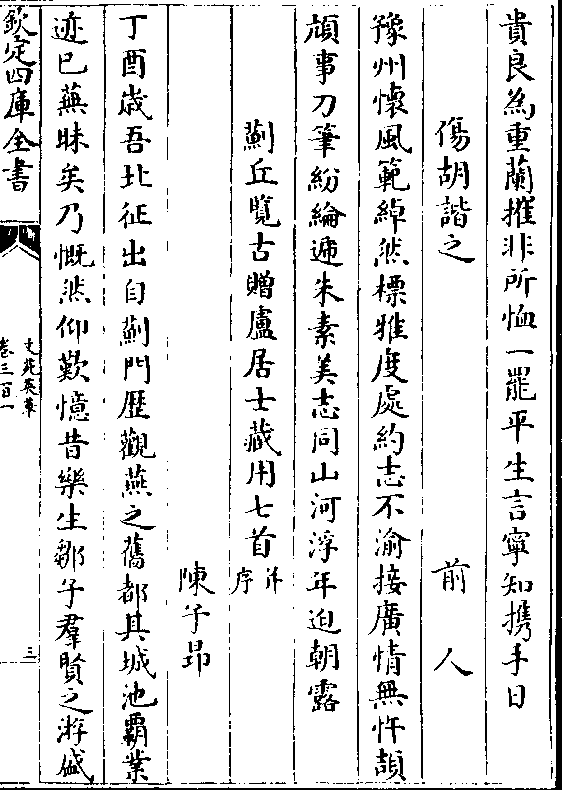 貴良為重蘭摧非所恤一罷平生言寧知携手日
傷胡諧之　前人
豫州懷風範綽然標雅度處約志不渝接廣情無忤頡
頏事刀筆紛綸遞朱素美志同山河浮年迫朝露
薊丘覽古贈盧居士藏用七首并序
陳子昻
丁酉歲吾北征出自薊門歷觀燕之舊都其城池霸業
迹已蕪昧矣乃慨然仰歎憶昔樂生鄒子羣賢之游盛
欽定四庫全書
文苑英華
卷三百一
三